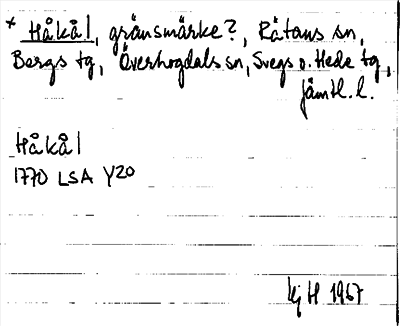 * Håkål, gränsmärke?, Råtans sn,
Bergs tg, Överhogdals sn, Svegs o. Hede tg,
Jämtl. l.
Håkål
1770 LSA Y20
kj H 1967